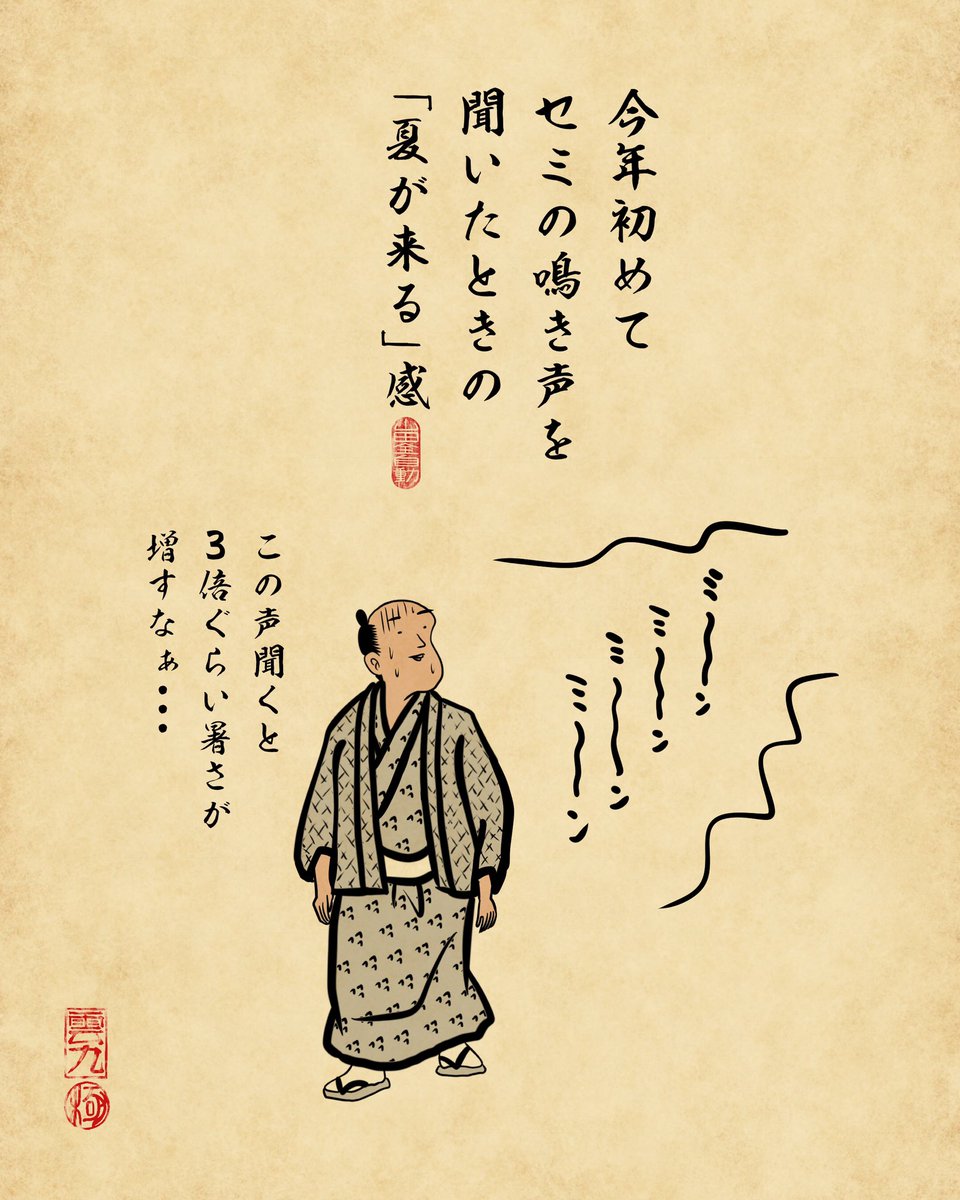 今年初めて
セミの鳴き声を
聞いたときの
「夏が来る」感
ミーン
ミーン
ミーン
ミーン
この声聞くと
3倍ぐらい暑さが
増すなぁ・・・